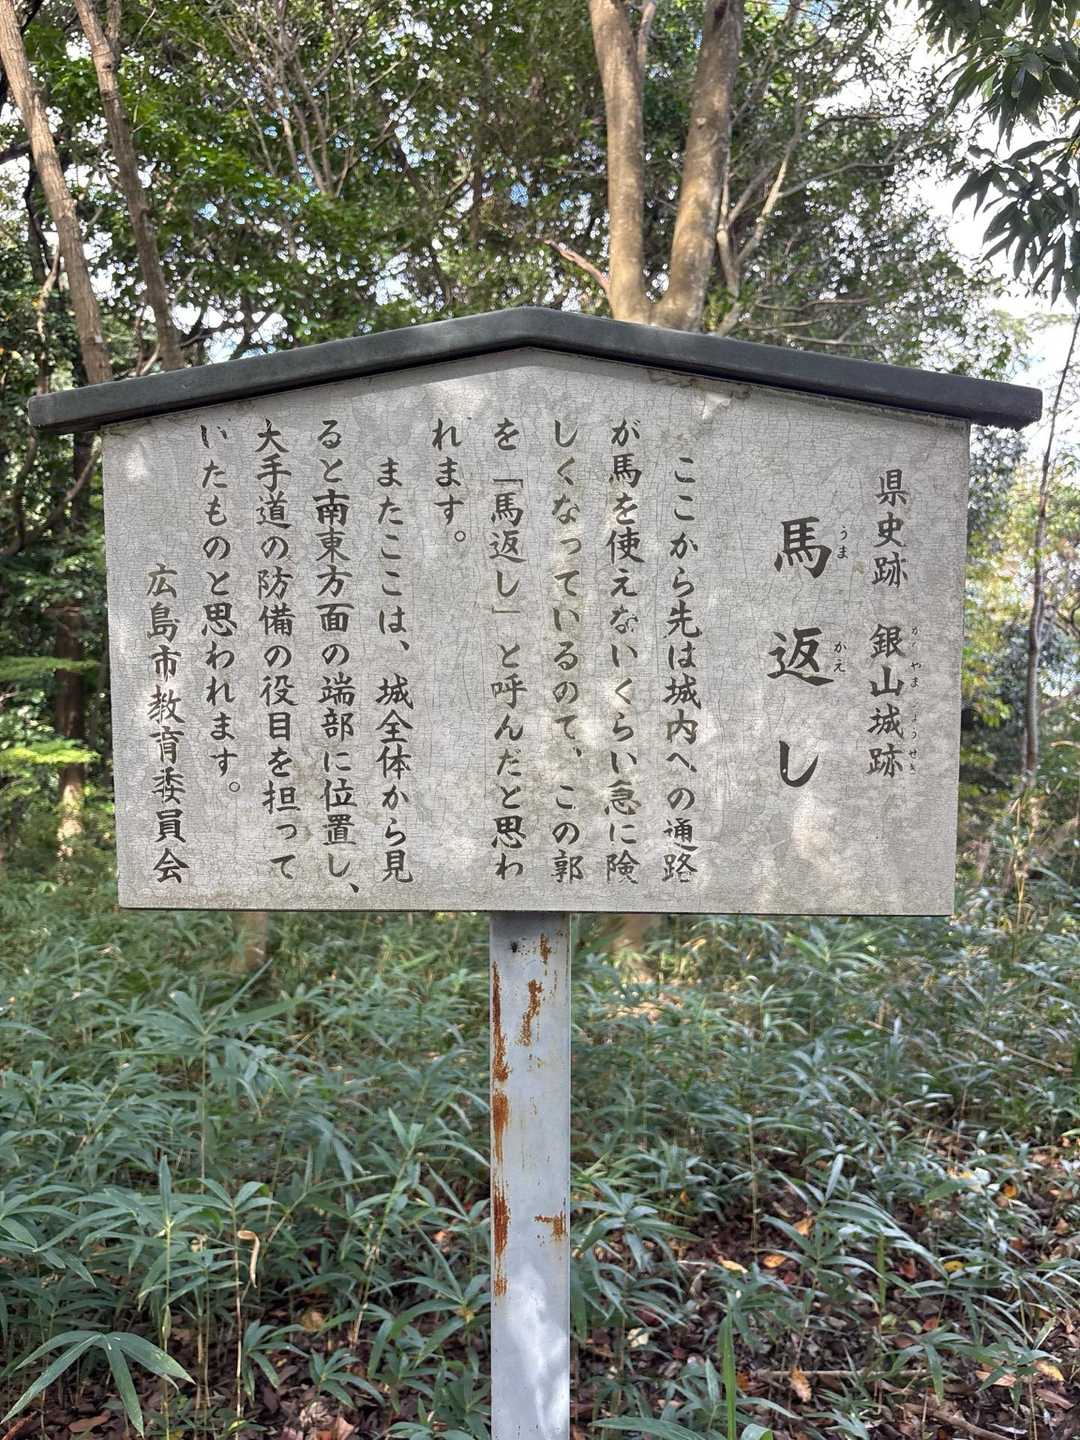 県史跡 銀山城跡
かなやまじょうせき
馬返し
うまかえ
ここから先は城内への通路
が馬を使えないくらい急に険
しくなっているので、この郭
を「馬返し」と呼んだと思わ
れます。
またここは、城全体から見
ると南東方面の端部に位置し、
大手道の防備の役目を担って
いたものと思われます。
広島市教育委員会